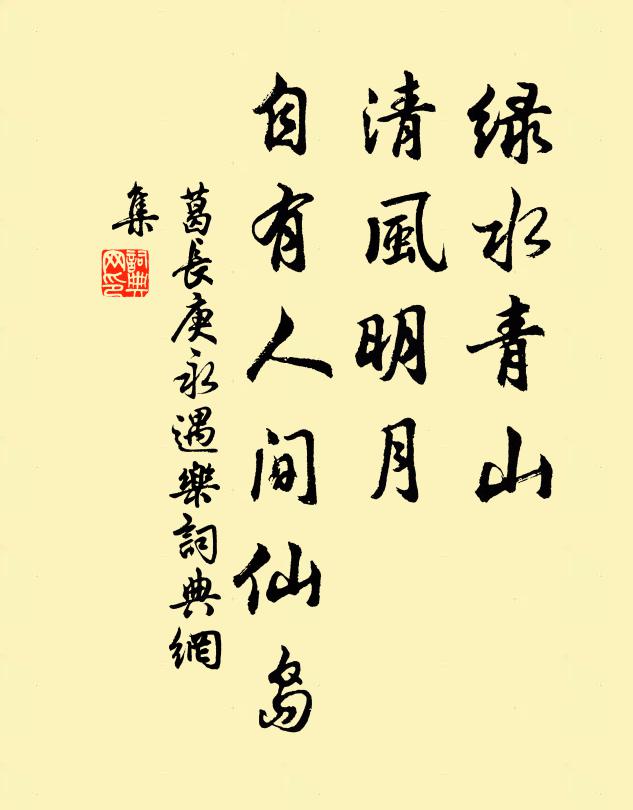 绿水青山
清風明月
自有人间仙島
葛長庚永遇樂詞典網
集
詞典网印